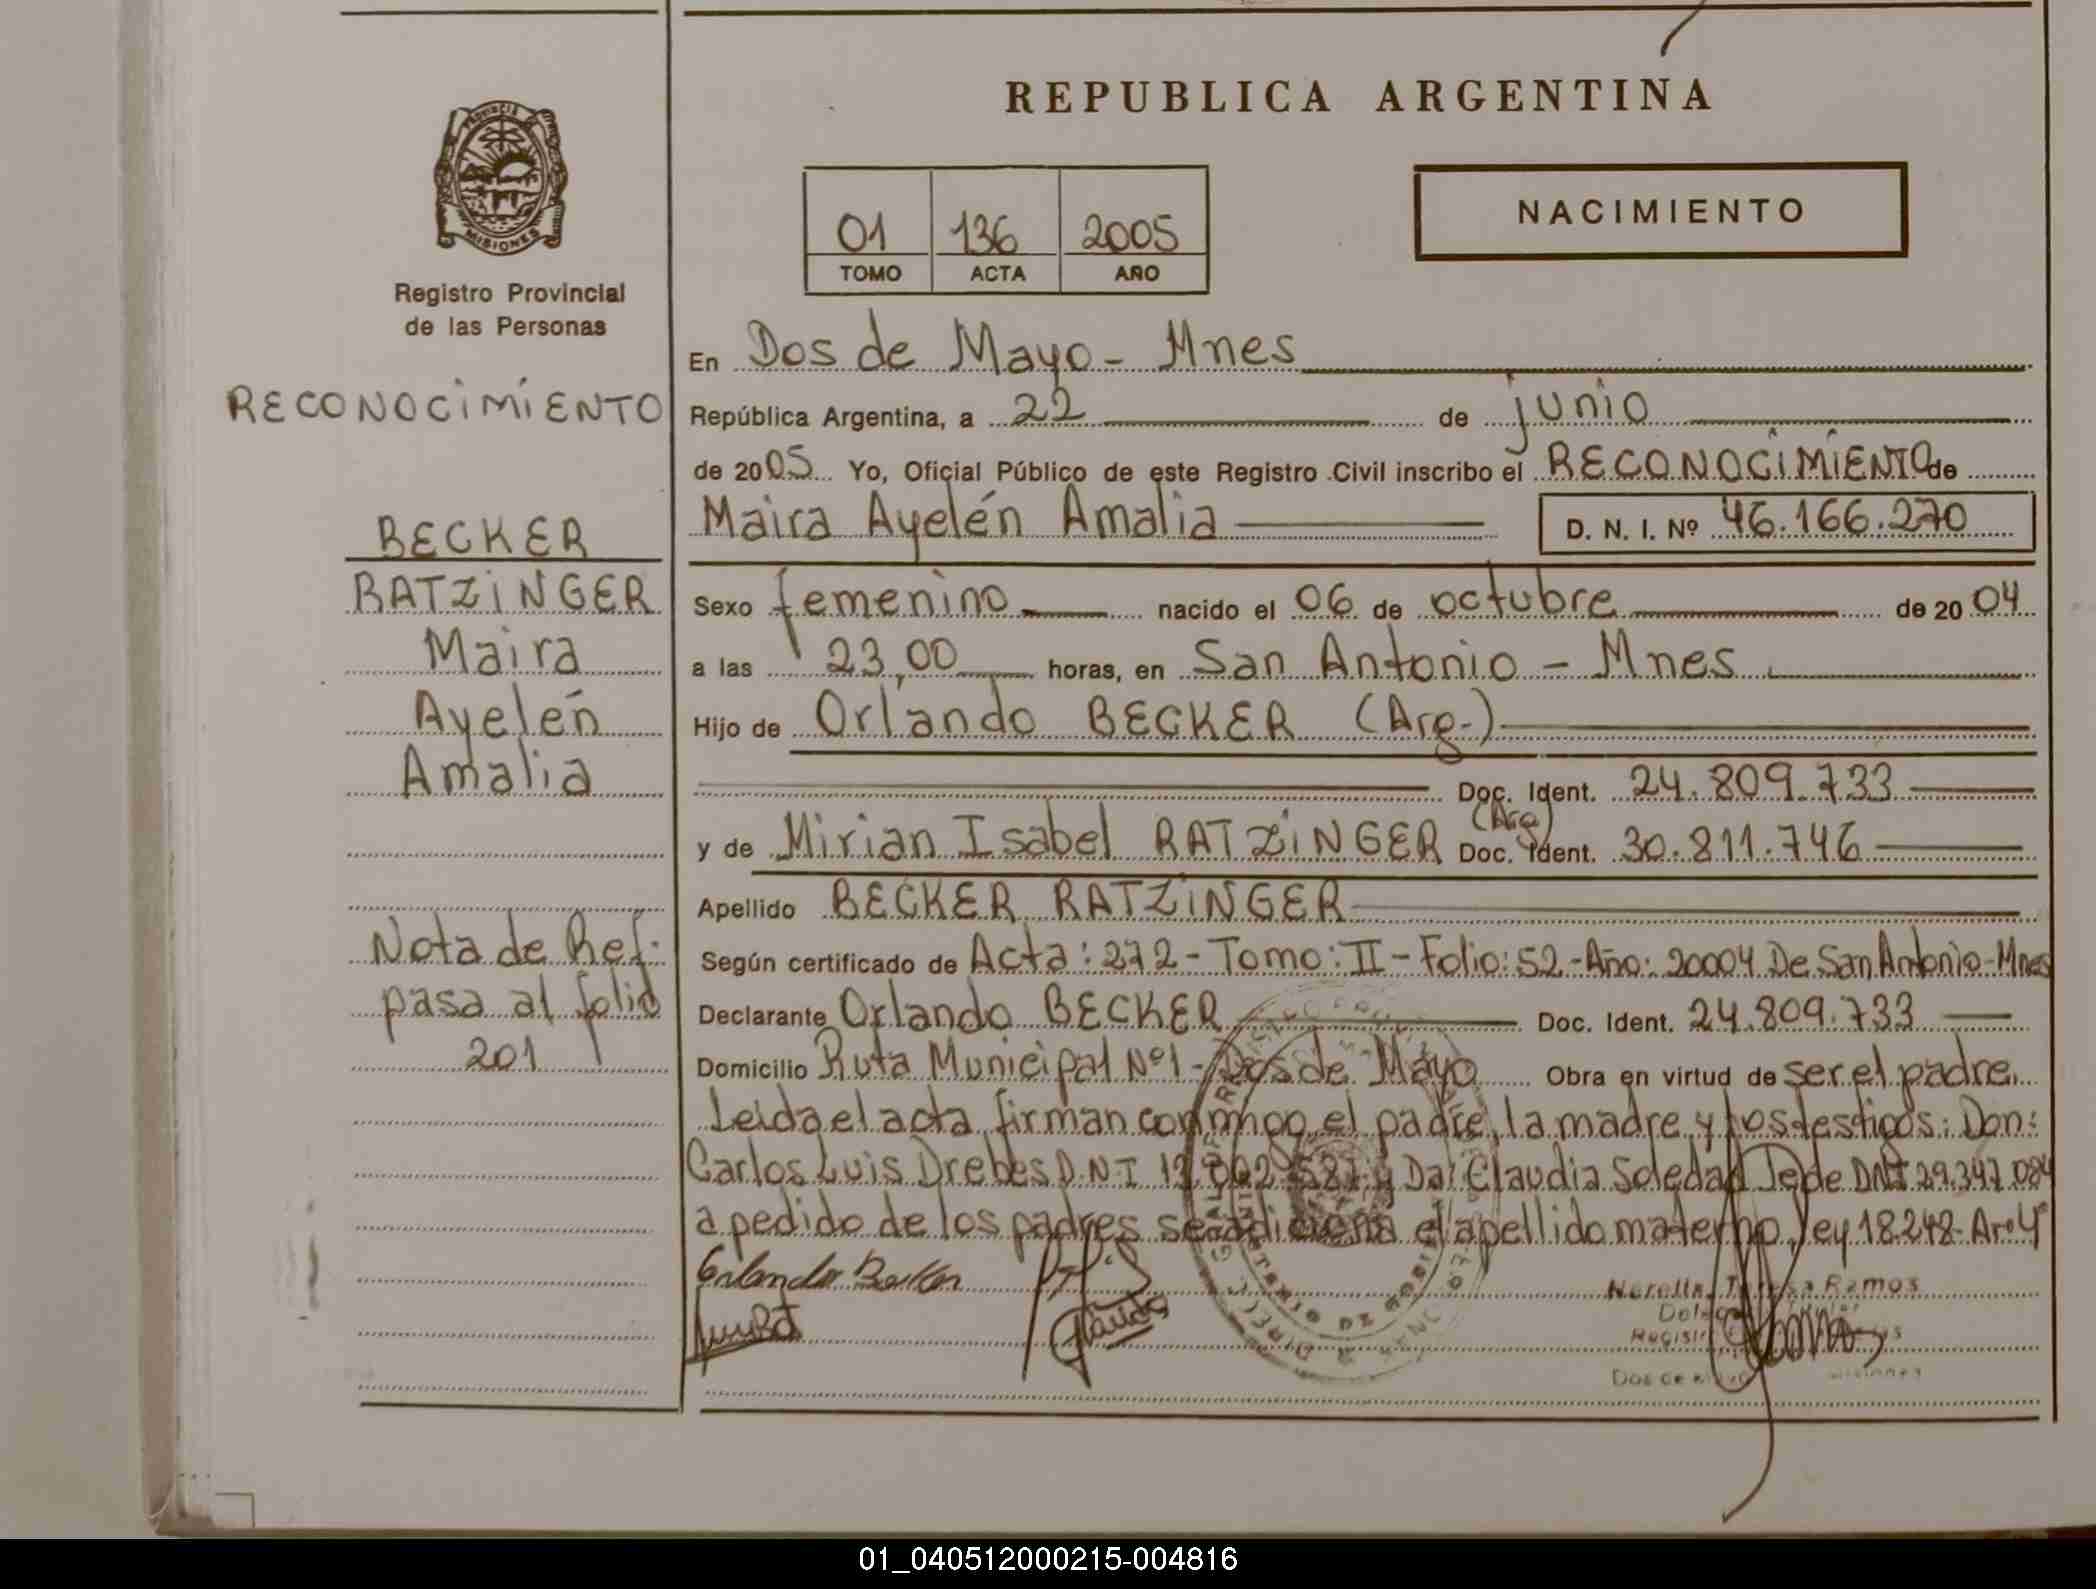 REPUBLICA ARGENTINA
PROVINCIA DE
MISIONES
Registro Provincial
de las Personas
RECONOCIMIENTO
BECKER
RATZINGER
Maira
Ayelén
Amalia
Nota de Ref.
pasa al folio
201
01 136 2005
TOMO ACTA AÑO
NACIMIENTO
En Dos de Mayo - Mnes
República Argentina, a 22 de junio
de 2005 Yo, Oficial Público de este Registro Civil inscribo el RECONOCIMIENTO de
Maira Ayelén Amalia D. N. I. Nº 46.166.270
Sexo femenino nacido el 06 de octubre de 2004
a las 23,00 horas, en San Antonio - Mnes
Hijo de Orlando BECKER (Arg.)
Doc. Ident. 24.809.733
y de Mirian Isabel RATZINGER (Arg) Doc. Ident. 30.811.746
Apellido BECKER RATZINGER
Según certificado de Acta: 272 - Tomo: II - Folio: 52 - Año: 20004 De San Antonio - Mnes
Declarante Orlando BECKER Doc. Ident. 24.809.733
Domicilio Ruta Municipal Nº1 - Dos de Mayo Obra en virtud de ser el padre.
Leída el acta firman conmigo el padre, la madre y los testigos: Don:
Carlos Luis Drebes D.N.I y Da: Claudia Soledad DNI 29.347.084
a pedido de los padres se adiciona el apellido materno, ley 18.248- Arº4º
Orlando Becker
Teresa Ramos
Dos de Mayo Misiones
01_040512000215-004816